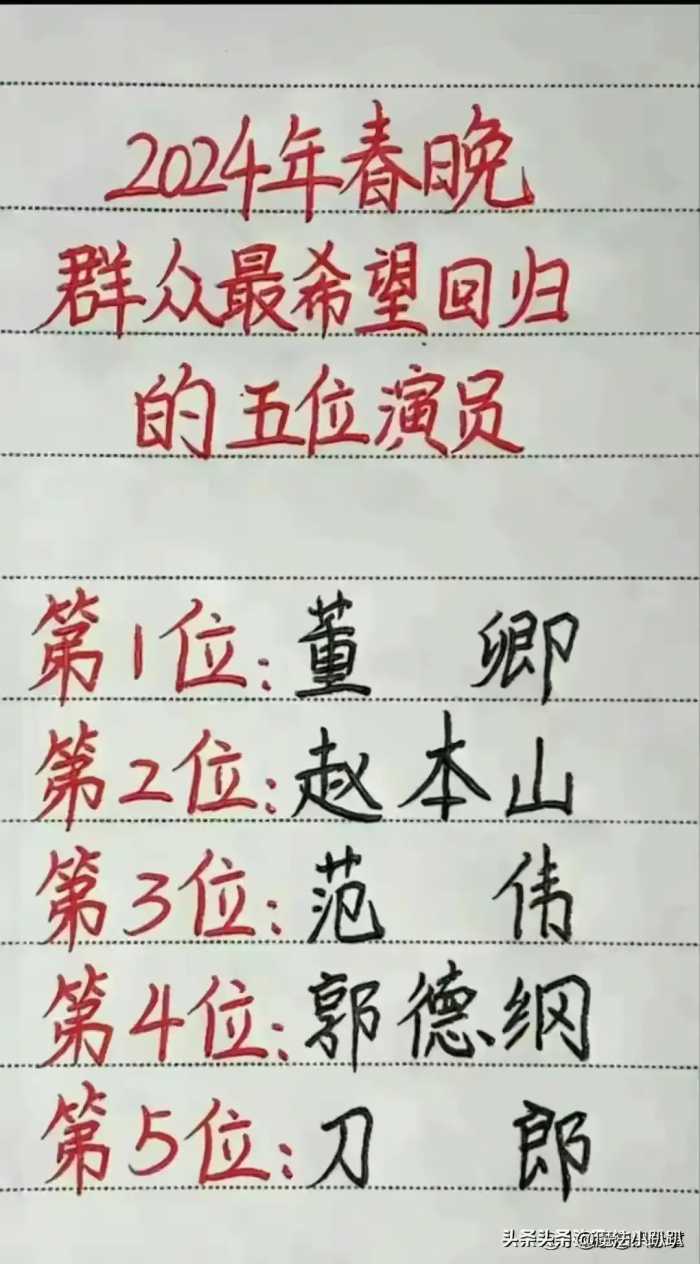 2024年春晚
群众最希望回归
的五位演员
第1位:董卿
第2位:赵本山
第3位:范伟
第4位:郭德纲
第5位:刀郎
头条 @魔法小趴趴